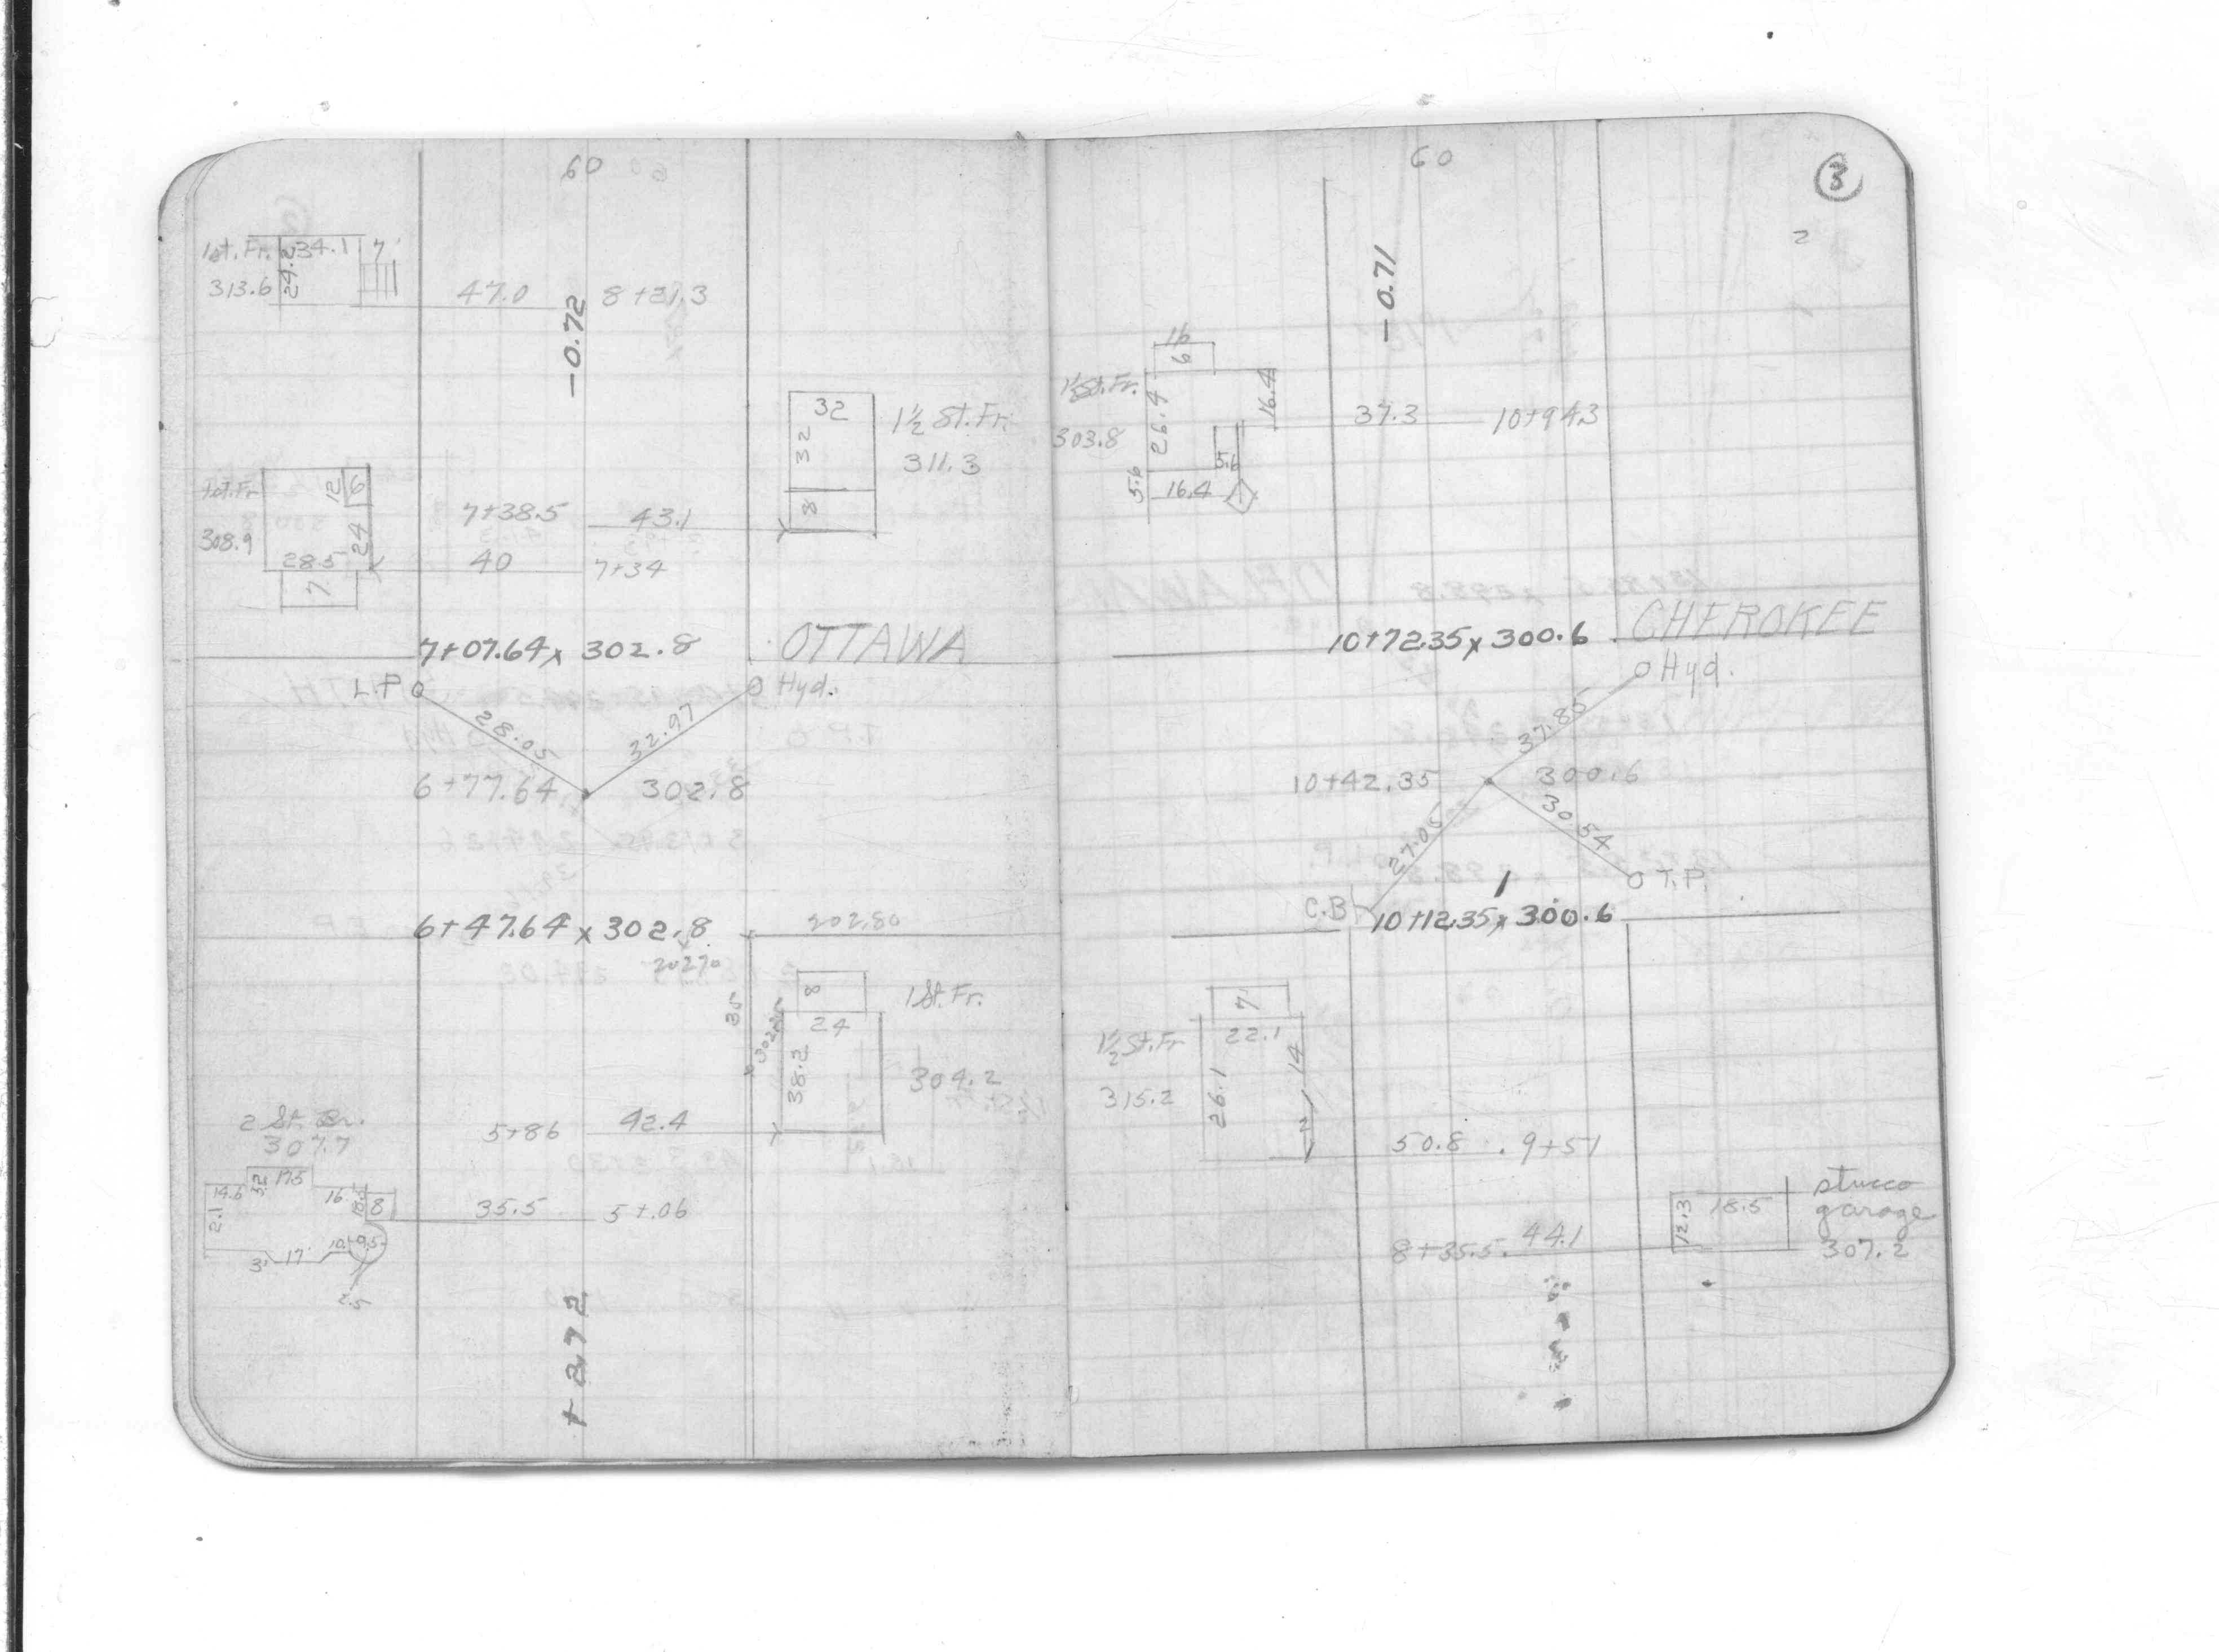 60
1st. Fr. 24.2 34.1 7'
313.6
47.0 8+21.3
-0.72
32
32
8
1½ St. Fr.
311.3
1st. Fr
308.9
12 6
24
28.5
7
7+38.5 43.1
40 7+34
7+07.64 x 302.8 OTTAWA
L.P Hyd.
28.05 32.97
6+77.64 302.8
6+47.64 x 302.8 202.80
35
8
24
38.2
1 St. Fr.
304.2
5+86 42.4
2 St. Br.
307.7
14.6 3.2 17.5 16 8
2.1
3' 17' 10. 9.5
2.5
35.5 5+.06
+2.72
60
3
2
-0.71
16
6
1½ St. Fr.
303.8
26.4
16.4
5.6
5.6
16.4
37.3 10+94.3
10+72.35 x 300.6 CHEROKEE
Hyd.
37.85
10+42.35 300.6
27.05 30.54
T.P.
C.B 10+12.35 x 300.6
7'
22.1
14
26.1
2
1½ St. Fr
315.2
50.8 9+51
12.3 18.5
stucco
garage
307.2
8+35.5 44.1